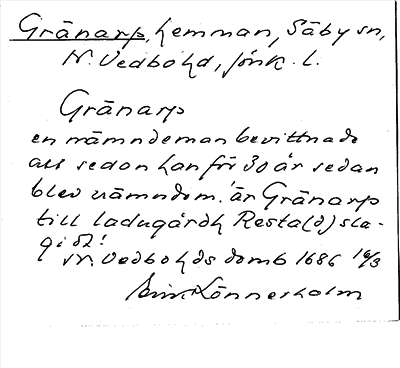 Gränarp, hemman, Säby sn,
N. Vedbo hd, Jönk. l.
Gränarp
en nämndeman bevittnade
att sedan han för 30 år sedan
blev nämndem. är Gränarp
till ladugårdh Resta(d) sla-
git!
N. Vedbo hds domb 1686 16/3
Lönnerholm